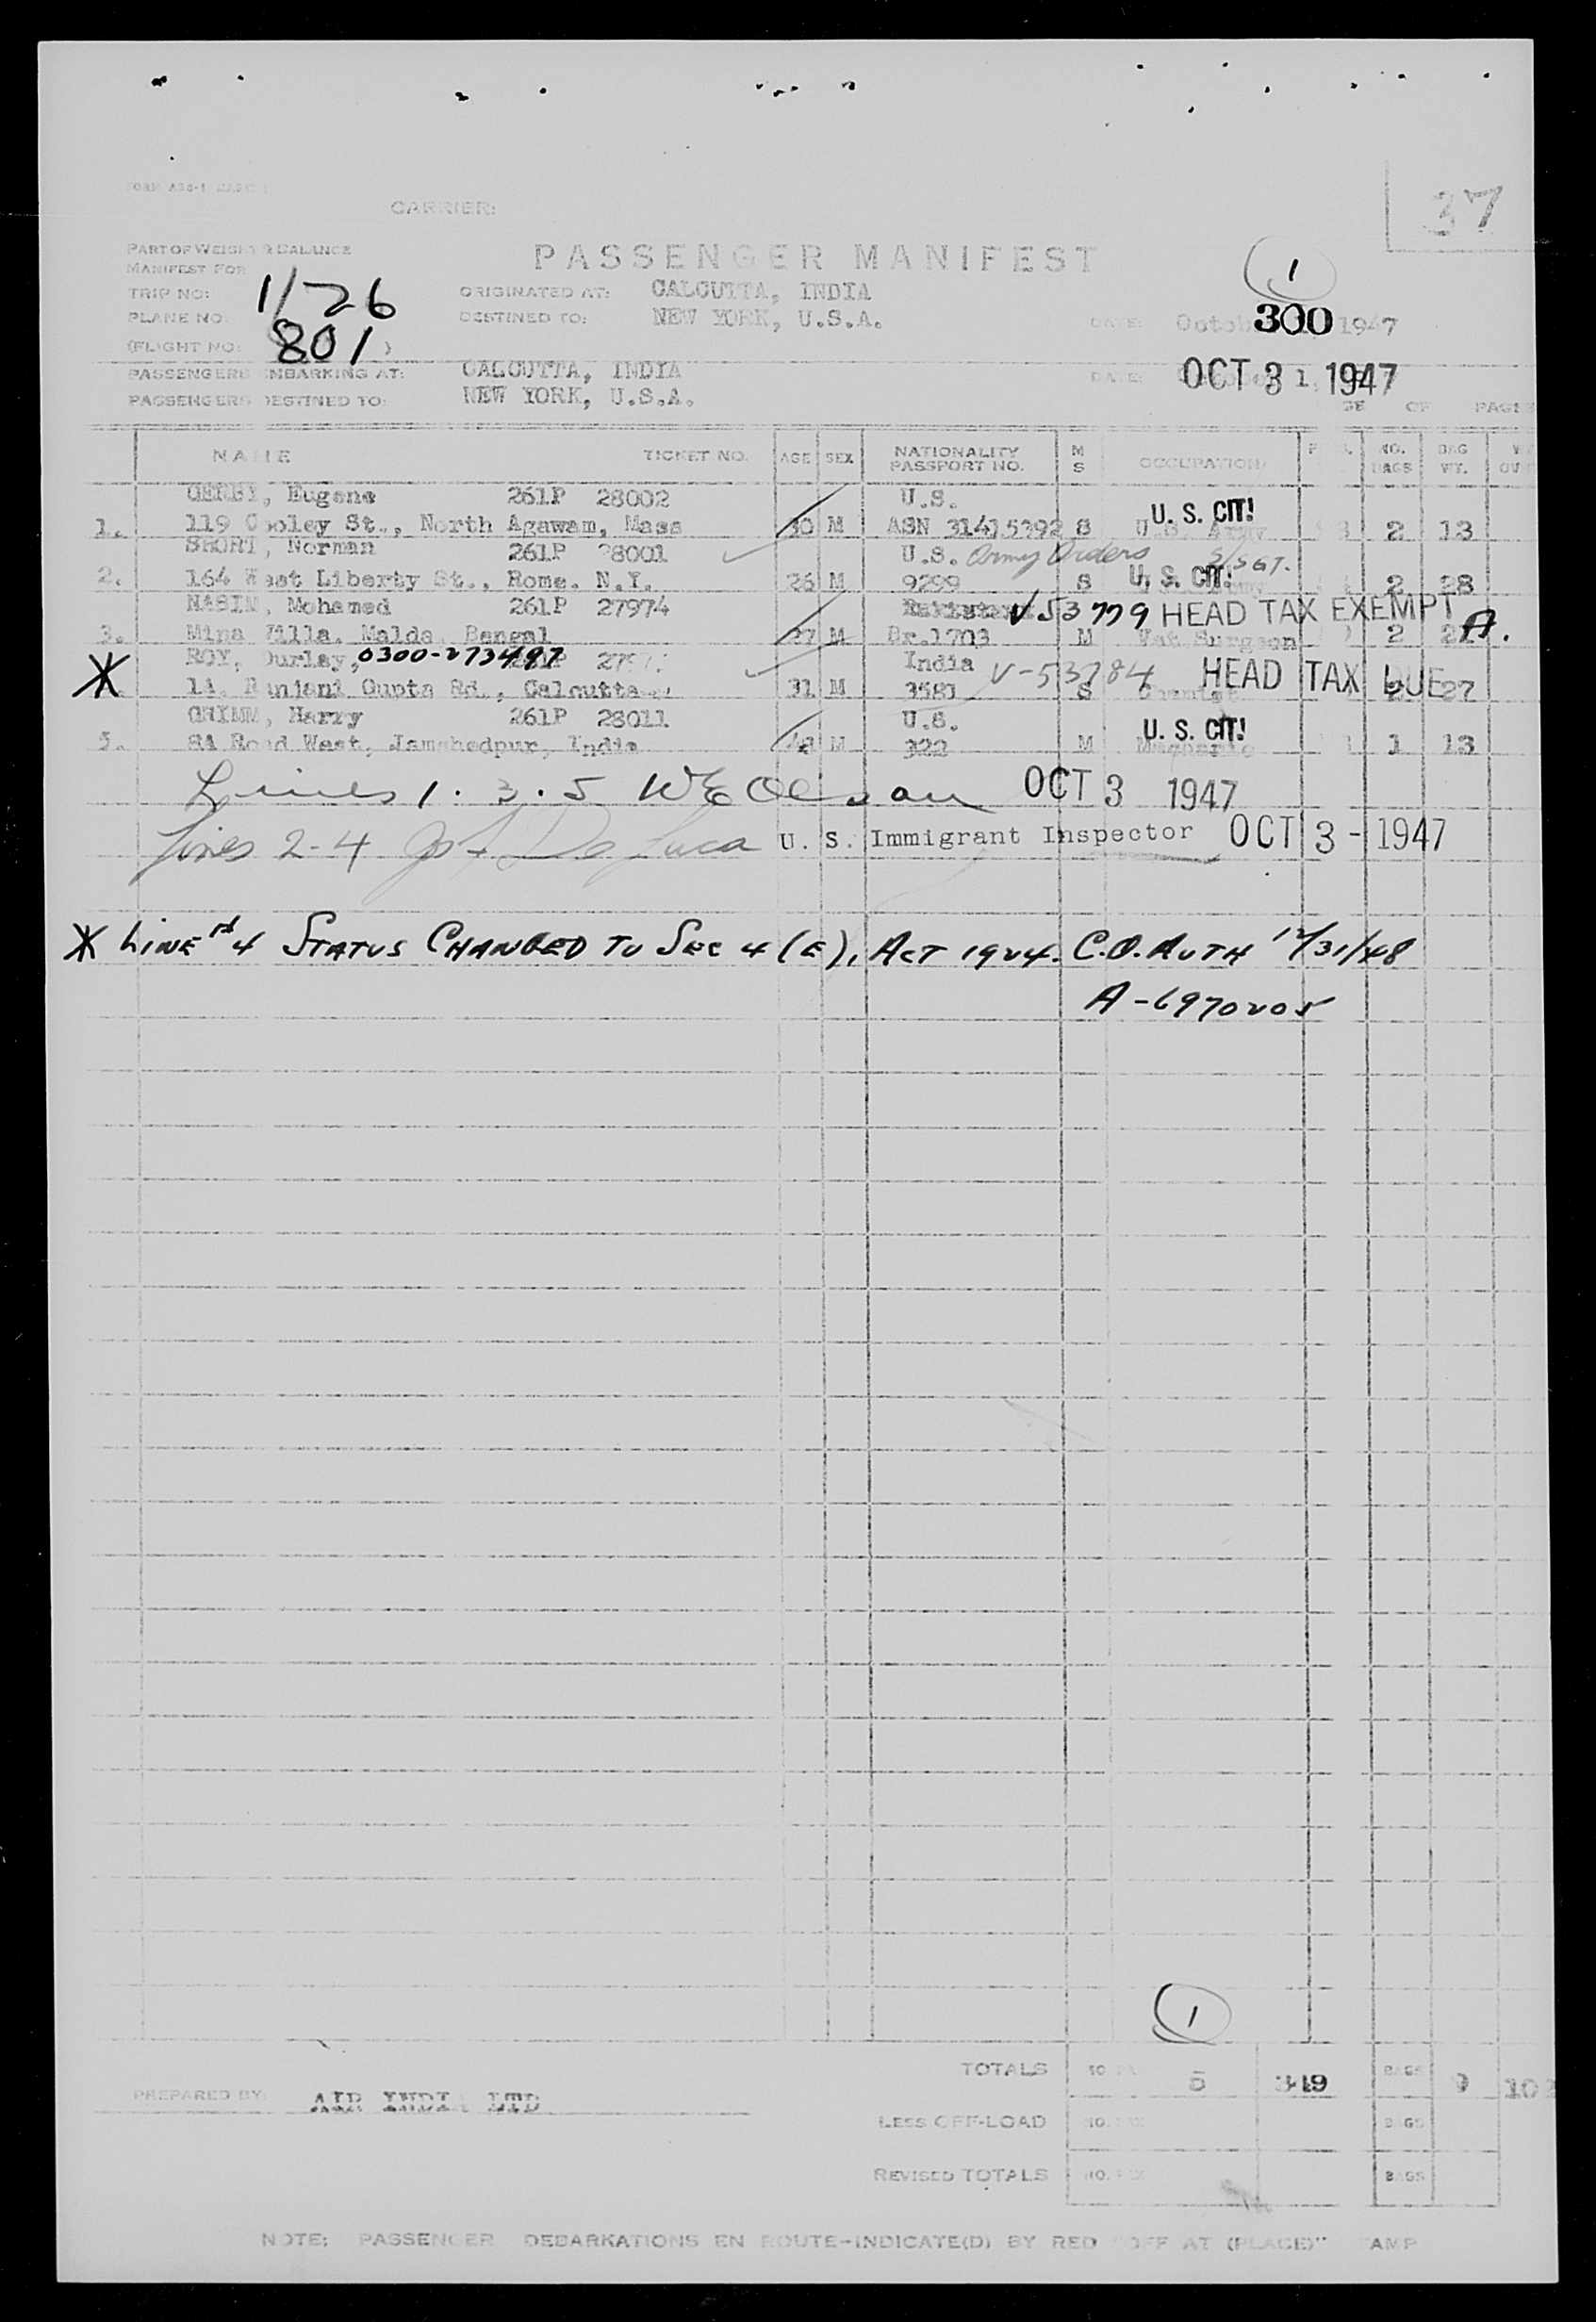 CARRIER:
37
PART OF WEIGHT & BALANCE
MANIFEST FOR
PASSENGER MANIFEST
1
TRIP NO: 1/26
ORIGINATED AT: CALCUTTA, INDIA
PLANE NO:
DESTINED TO: NEW YORK, U.S.A.
DATE: 300 1947
(FLIGHT NO: 801 )
PASSENGERS EMBARKING AT: CALCUTTA, INDIA
DATE: OCT 3 1947
PASSENGERS DESTINED TO: NEW YORK, U.S.A.
OF PAGES
NAME TICKET NO. AGE SEX NATIONALITY PASSPORT NO. M S OCCUPATION NO. BAGS BAG WT.
Eugene 261P 28002 U.S. U. S. CIT!
1. 119 Cooley St., North Agawam, Mass 30 M ASN 31415392 S U.S. Army 2 13
SHORT, Norman 261P 28001 U.S. Army Orders S/SGT.
2. 164 West Liberty St., Rome. N.Y. 26 M 9299 S U. S. CIT! 2 28
NASIM, Mohamed 261P 27974 V53779 HEAD TAX EXEMPT A.
3. Mina Villa, Malda, Bengal 27 M Br.1703 M Vet Surgeon 2
ROY, Durlay, 0300-273497 India V-53784 HEAD TAX DUE
* 14, Ranjani Gupta Rd., Calcutta 31 M S Chemist 27
GRIMM, Harry 261P 28011 U.S. U. S. CIT!
5. 8A Road West, Jamshedpur, India 48 M 322 M 1 13
Lines 1. 3. 5 W E Olson OCT 3 1947
Lines 2-4 De Luca U. S. Immigrant Inspector OCT 3 - 1947
* LINE 4 STATUS CHANGED TO SEC 4 (E), ACT 1924. C.O. AUTH 12/31/48
A-6970205
1
TOTALS 5 BAGS 9
PREPARED BY: AIR INDIA LTD
LESS OFF-LOAD NO. BAGS
REVISED TOTALS NO. BAGS
NOTE: PASSENGER DEBARKATIONS EN ROUTE-INDICATE(D) BY RED "OFF AT (PLACE)" STAMP